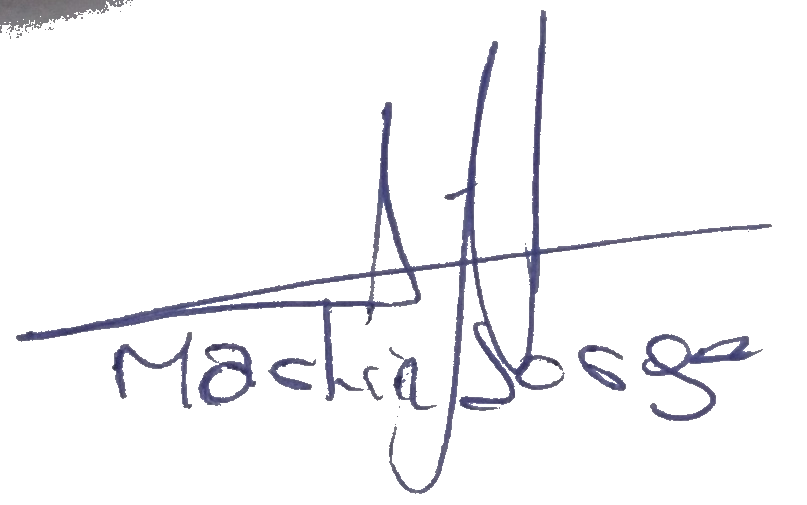 Machia Jorge